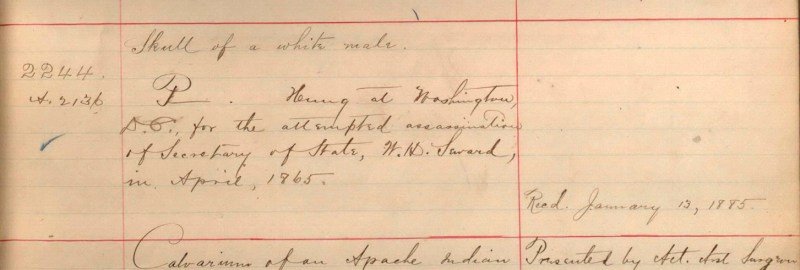 Skull of a white male.
2244.
A. 2136
P . Hung at Washington,
D.C., for the attempted assassination
of Secretary of State, W.H. Seward,
in April, 1865.
Recd. January 13, 1885.
Calvarium of an Apache Indian
Presented by Act. Asst Surgeon